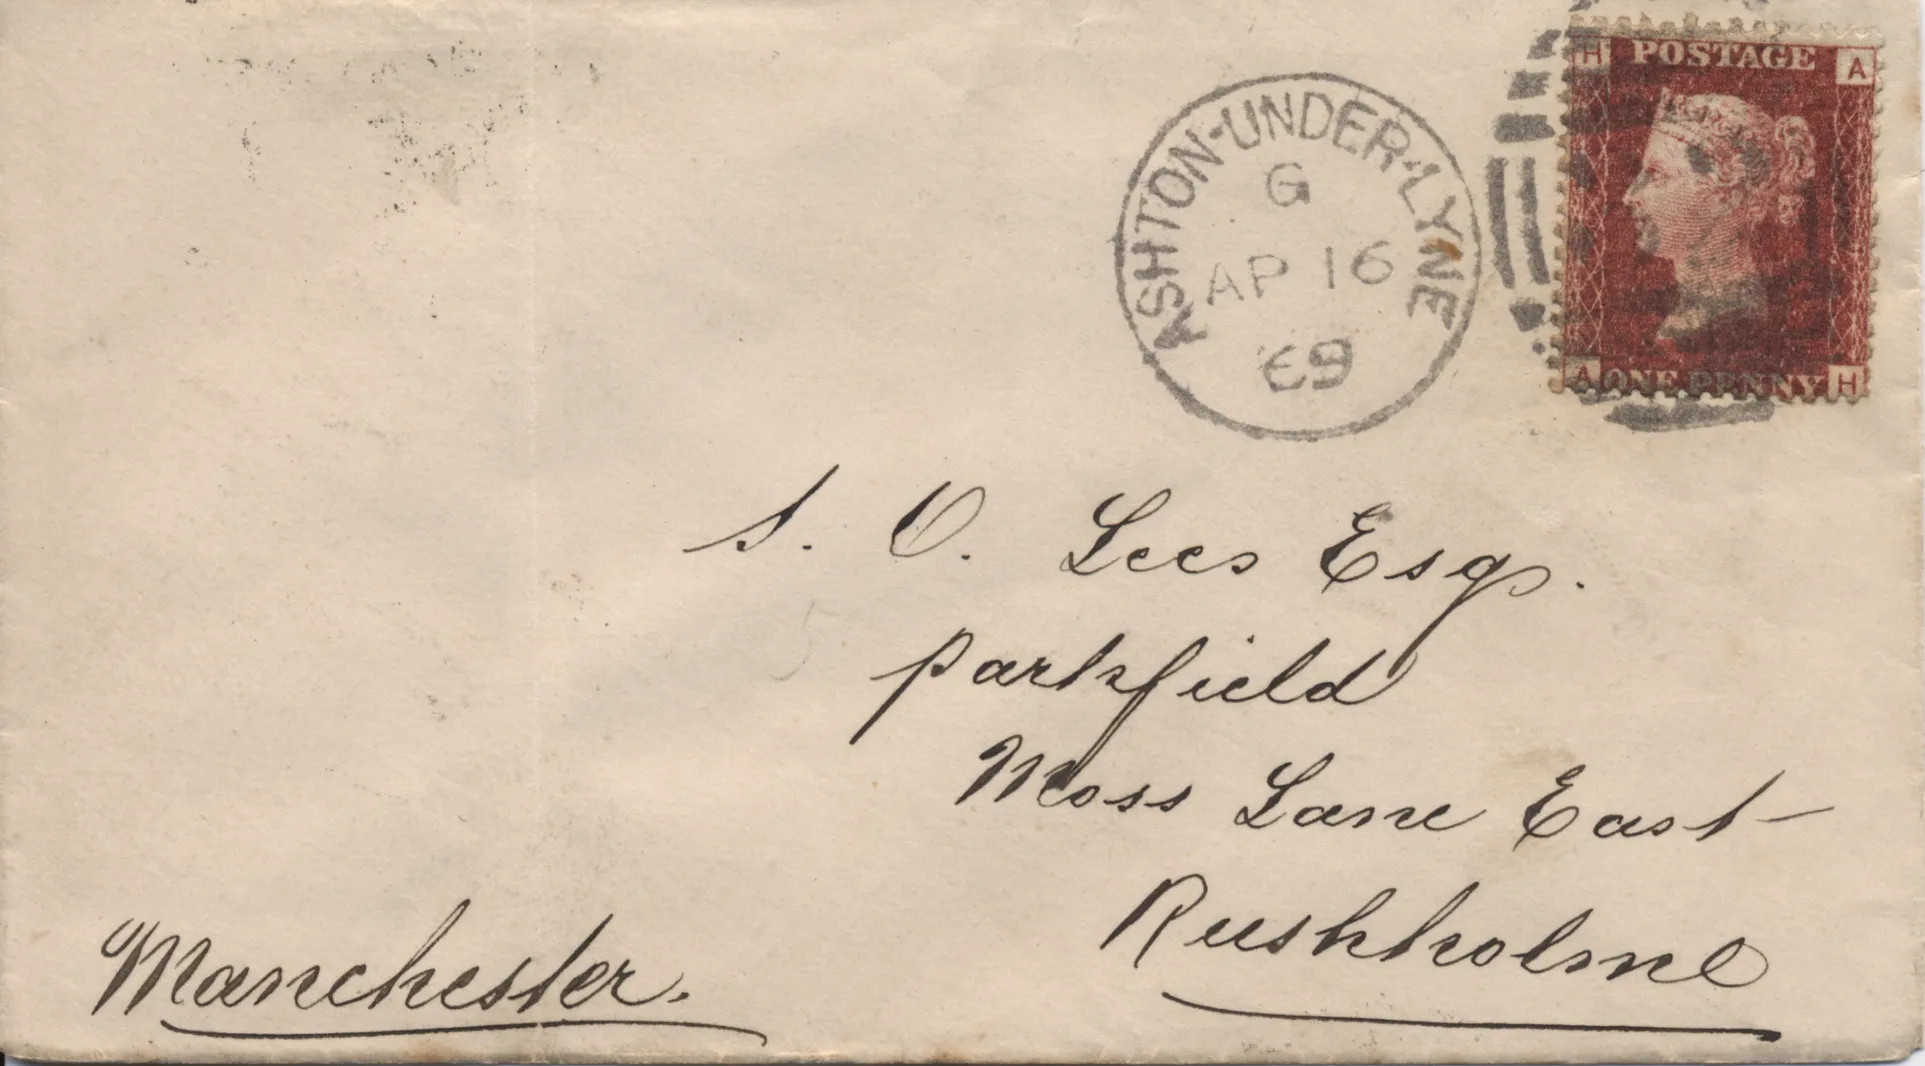 H POSTAGE A
A ONE PENNY H
ASHTON-UNDER-LYNE
G
AP 16
69
S. O. Lees Esqr.
Parkfield
Moss Lane East
Rushholme
Manchester.